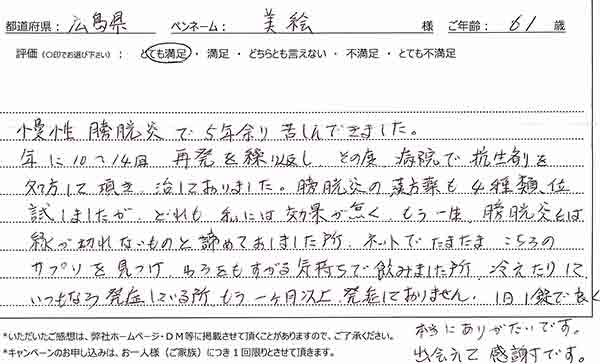 都道府県： 広島県 ペンネーム： 美絵 様 ご年齢： 61 歳
評価（〇印でお選び下さい）： とても満足 ・ 満足 ・ どちらとも言えない ・ 不満足 ・ とても不満足
慢性膀胱炎で5年余り苦しんできました。
年に10〜14回 再発を繰り返し その度 病院で抗生剤を
処方して頂き、治しておりました。膀胱炎の漢方薬も4種類位
試しましたが、どれも私には効果が無く、もう一生、膀胱炎とは
縁が切れないものと諦めておりました所、ネットでたまたまこちらの
サプリを見つけ、わらをもすがる気持ちで飲みました所、冷えたりして
いつもなら発症している所もう一ヶ月以上、発症しておりません。1日1錠で良く
本当にありがたいです。
出会えて感謝です。
*いただいたご感想は、弊社ホームページ・DM等に掲載させて頂くことがありますので、ご了承ください。
*キャンペーンのお申し込みは、お一人様（ご家族）につき1回限りとさせて頂きます。